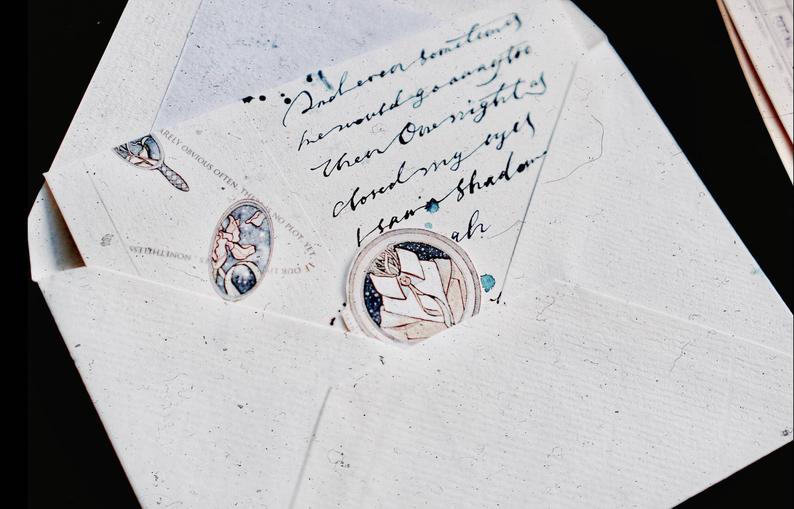 And even sometimes
he would go away too
then One night as
closed my eyes
I saw a shadow
ah
ARELY OBVIOUS OFTEN, THERE IS NO PLOT. YET, IF
OUR LI
S, NONETHELESS